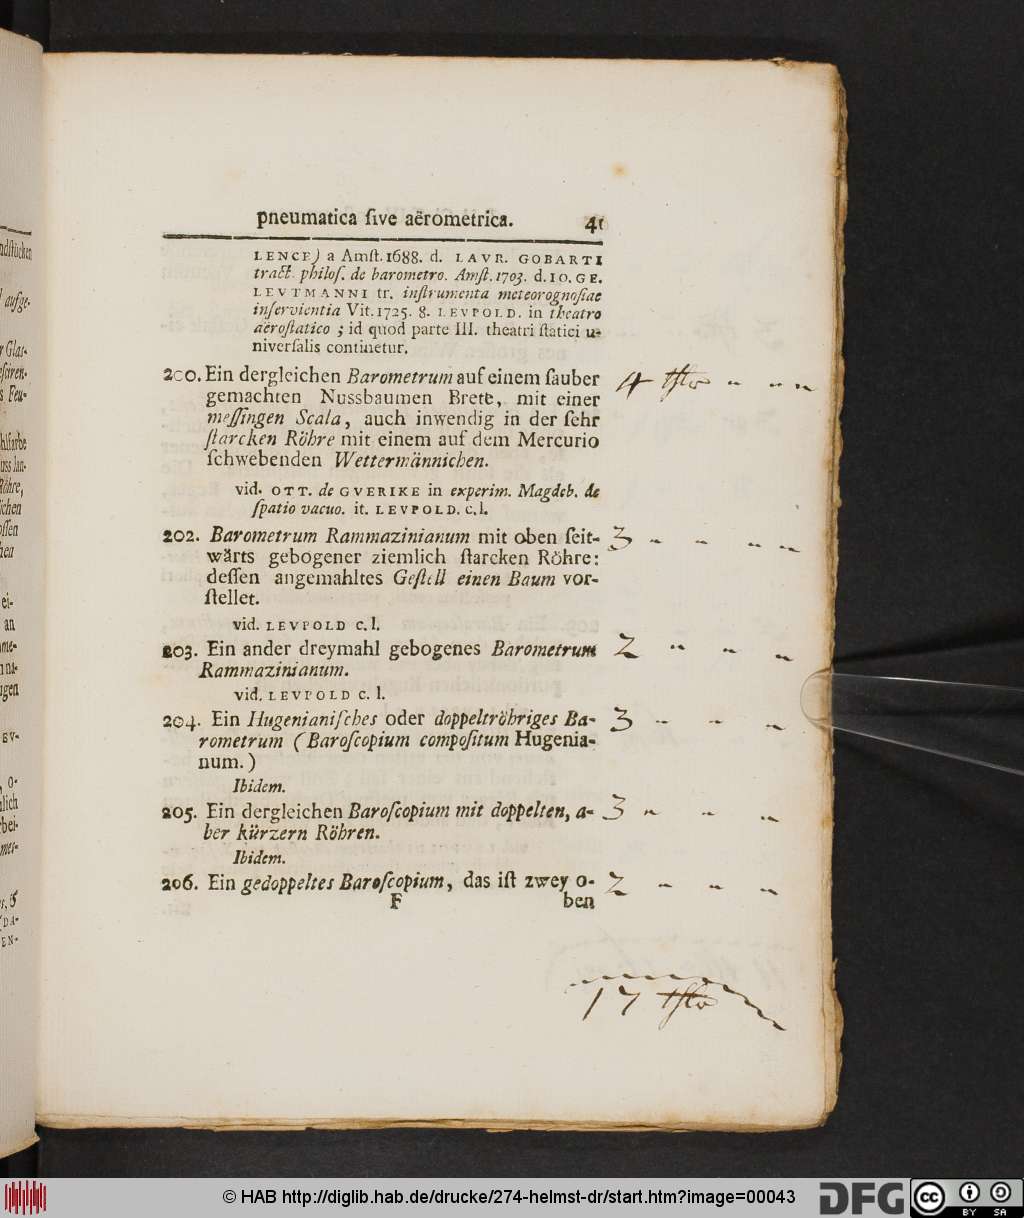 pneumatica ſive aërometrica. 41
LENCE) a Amſt. 1688. d. LAVR. GOBARTI
tract. philoſ. de barometro. Amſt. 1703. d. IO. GE.
LEVTMANNI tr. inſtrumenta meteorognoſiae
inſervientia Vit. 1725. 8. LEVPOLD. in theatro
aëroſtatico ; id quod parte III. theatri ſtatici u-
niverſalis continetur.
200. Ein dergleichen Barometrum auf einem ſauber
gemachten Nussbaumen Brett, mit einer
meſſingen Scala, auch inwendig in der ſehr
ſtarcken Röhre mit einem auf dem Mercurio
ſchwebenden Wettermännichen.
4 thlr
vid. OTT. de GVERIKE in experim. Magdeb. de
ſpatio vacuo. it. LEVPOLD. c. l.
202. Barometrum Rammazinianum mit oben ſeit-
wärts gebogener ziemlich ſtarcken Röhre:
deſſen angemahltes Geſtell einen Baum vor-
ſtellet.
3
vid. LEVPOLD c. l.
203. Ein ander dreymahl gebogenes Barometrum
Rammazinianum.
2
vid. LEVPOLD c. l.
204. Ein Hugenianiſches oder doppeltröhriges Ba-
rometrum (Baroſcopium compoſitum Hugenia-
num.)
3
Ibidem.
205. Ein dergleichen Baroſcopium mit doppelten, a-
ber kürzern Röhren.
3
Ibidem.
206. Ein gedoppeltes Baroſcopium, das iſt zwey o-
2
F ben
17 thlr
ndſtücken
aufge-
Glas-
Feu-
Röhre,
ei-
an
ugen
o-
bei-
© HAB http://diglib.hab.de/drucke/274-helmst-dr/start.htm?image=00043
DFG
cc BY SA